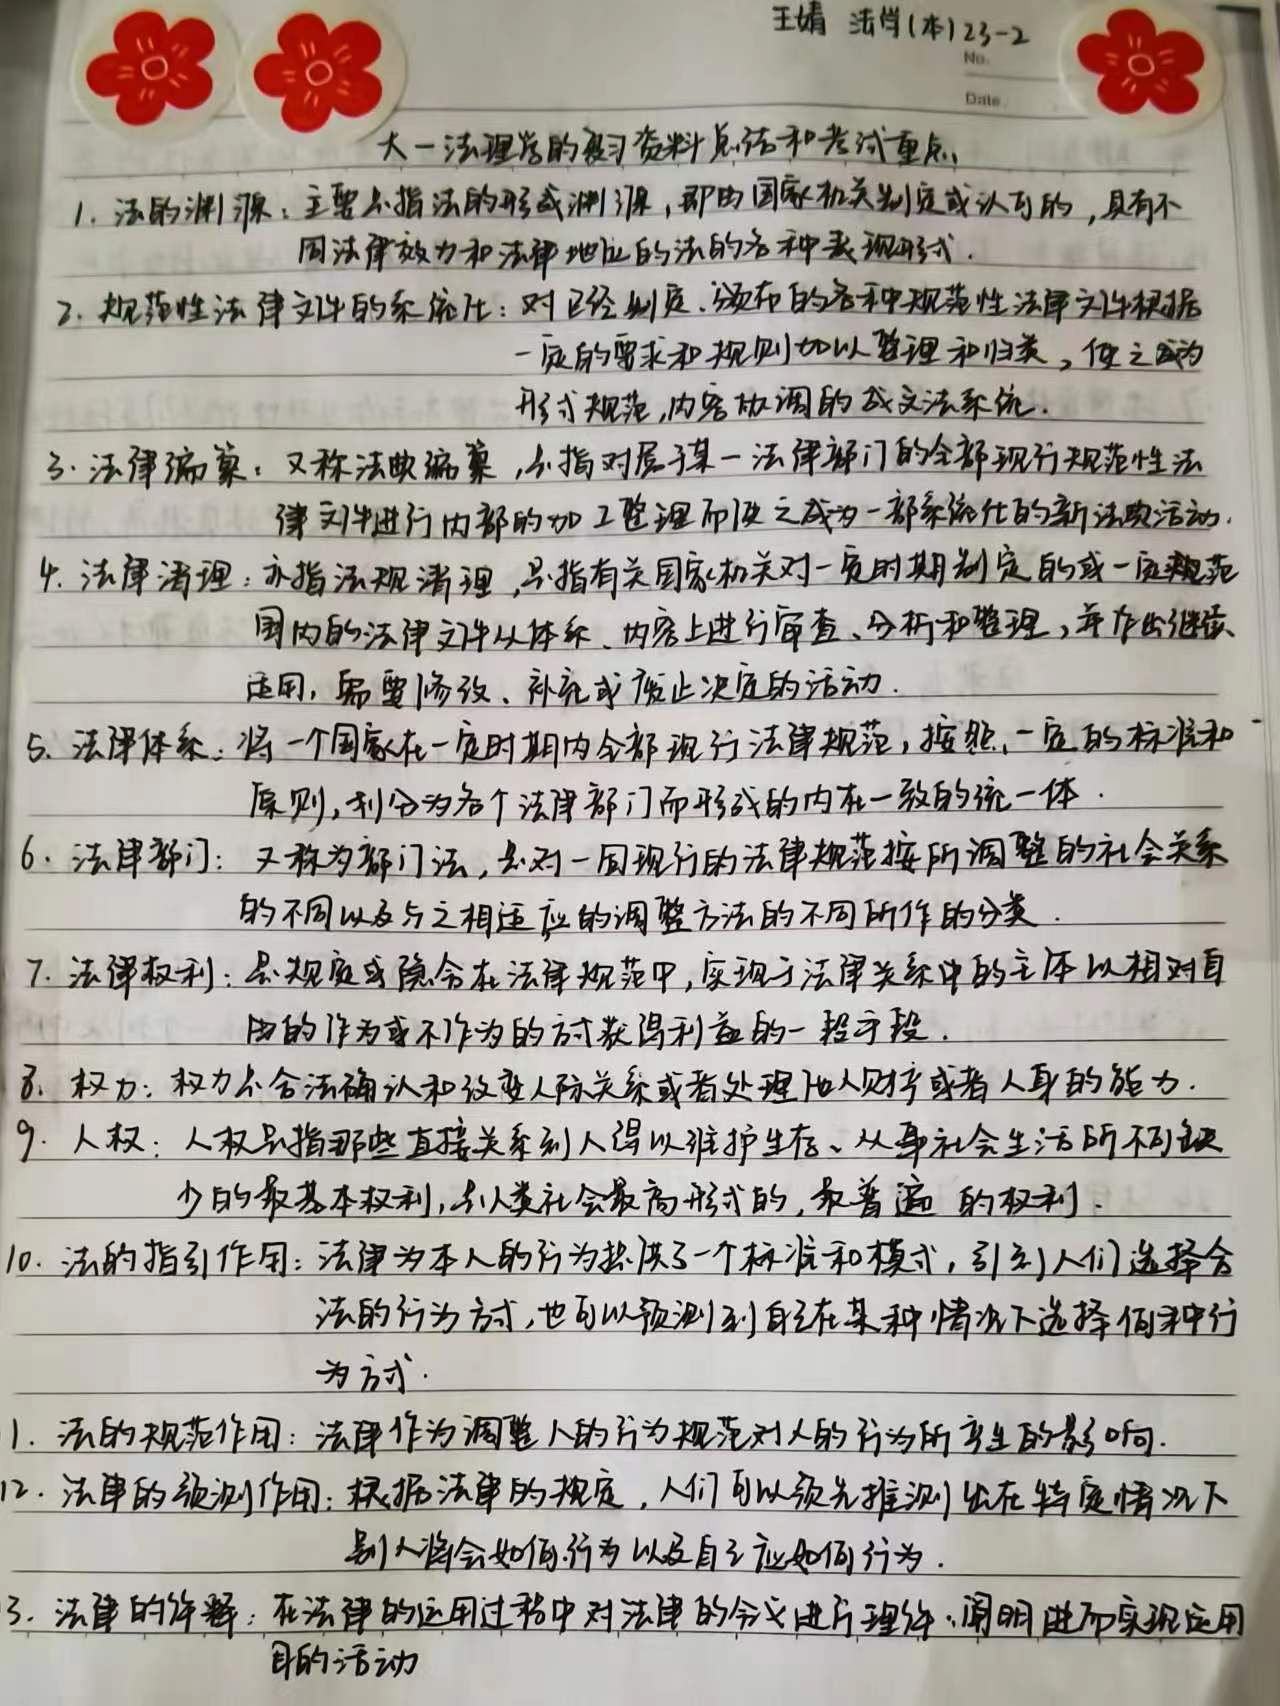 王婧 法学(本)23-2
No.
Date.
大一法理学的复习资料总结和考试重点
1. 法的渊源：主要是指法的形式渊源，即由国家机关制定或认可的，具有不
同法律效力和法律地位的法的各种表现形式.
2. 规范性法律文件的系统化：对已经制定、颁布的各种规范性法律文件根据
一定的要求和规则加以整理和归类，使之成为
形式规范,内容协调的成文法系统.
3. 法律编纂：又称法典编纂，是指对属于某一法律部门的全部现行规范性法
律文件进行内部的加工整理而使之成为一部系统化的新法典活动.
4. 法律清理：亦指法规清理，是指有关国家机关对一定时期制定的或一定规范
围内的法律文件从体系、内容上进行审查、分析和整理，并作出继续
适用，需要修改、补充或废止决定的活动.
5. 法律体系：将一个国家在一定时期内全部现行法律规范，按照一定的标准和
原则，划分为各个法律部门而形成的内在一致的统一体.
6. 法律部门：又称为部门法，是对一国现行的法律规范按所调整的社会关系
的不同以及与之相适应的调整方法的不同所作的分类.
7. 法律权利：是规定或隐含在法律规范中，实现于法律关系中的主体以相对自
由的作为或不作为的方式获得利益的一种手段.
8. 权力：权力是合法确认和改变人际关系或者处理他人财产或者人身的能力.
9. 人权：人权是指那些直接关系到人得以维护生存、从事社会生活所不可缺
少的最基本权利，是人类社会最高形式的，最普遍的权利.
10. 法的指引作用：法律为本人的行为提供了一个标准和模式，引到人们选择合
法的行为方式，也可以预测到自己在某种情况下选择何种行
为方式.
11. 法的规范作用：法律作为调整人的行为规范对人的行为所产生的影响.
12. 法律的预测作用：根据法律的规定，人们可以预先推测出在特定情况下
别人将会如何行为以及自己应如何行为.
13. 法律的解释：在法律的运用过程中对法律的含义进行理解、阐明进而实现运用
目的活动